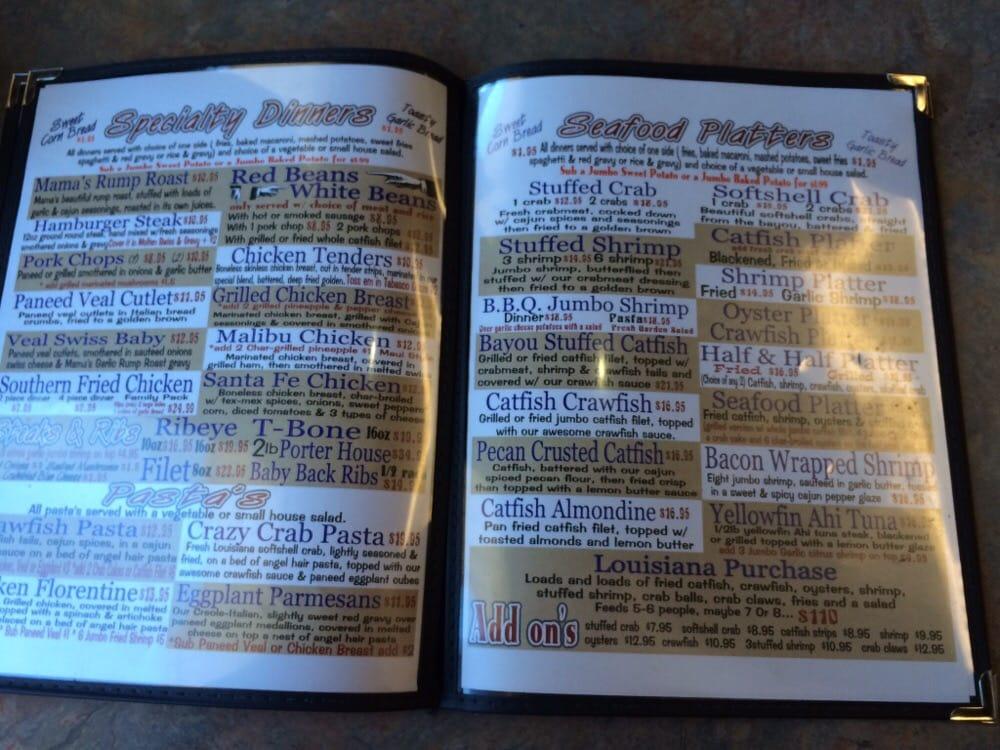 Sweet Corn Bread $1.95
Specialty Dinners
Toasty Garlic Bread $1.95
All dinners served with choice of one side ( fries, baked macaroni, mashed potatoes, sweet fries
spaghetti & red gravy or rice & gravy) and choice of a vegetable or small house salad.
Sub a Jumbo Sweet Potato or a Jumbo Baked Potato for $1.99
Mama's Rump Roast $10.95
Mama's beautiful rump roast, stuffed with loads of
garlic & cajun seasonings, roasted in its own juices.
Hamburger Steak $10.95
12oz ground round steak, hand mixed w/fresh seasonings
smothered onions & gravy Cover it in Molten Swiss & Gravy + $2
Pork Chops (1) $8.95 (2) $10.95
Paneed or grilled smothered in onions & garlic butter
* add grilled marinated mushrooms
Paneed Veal Cutlet $11.95
Paneed veal cutlets in Italian bread
crumbs, fried to a golden brown
Veal Swiss Baby $12.95
Paneed veal cutlets, smothered in sauteed onions
swiss cheese & Mama's Garlic Rump Roast gravy
Southern Fried Chicken
2 piece dinner 4 piece dinner Family Pack
$24.99
Red Beans
White Beans
only served w/ choice of meat and rice
With hot or smoked sausage $8.95
With 1 pork chop $8.95 2 pork chops
With grilled or fried whole catfish filet
Chicken Tenders $10.95
Boneless skinless chicken breast, cut in tender strips, marinated
special blend, battered, deep fried golden. Toss em in Tabasco
Grilled Chicken Breast
*add 2 grilled pineapple & pepper
Marinated chicken breast, grilled with
seasonings & covered in smothered onions
Malibu Chicken $12.9
*add 2 Char-grilled pineapple
Marinated chicken breast, covered in
grilled ham, then smothered in melted swiss
Santa Fe Chicken
Boneless chicken breast, char-broiled
w/ tex-mex spices, onions, sweet peppers
corn, diced tomatoes & 3 types of cheese
Steaks & Ribs
Ribeye
10oz $16.95 16oz $19.95
T-Bone 16oz
2lb Porter House
Filet 8oz $22.95
Baby Back Ribs 1/2 rack
Pasta's
All pasta's served with a vegetable or small house salad.
awfish Pasta $12.95
fish tails, cajun spices, in a cajun
sauce on a bed of angel hair pasta
ken Florentine $13.95
Grilled chicken, covered in melted
topped with a spinach & artichoke
placed on a bed of angel hair pasta
* Sub Paneed Veal * 6 Jumbo Fried Shrimp $6
Crazy Crab Pasta
Fresh Louisiana softshell crab, lightly seasoned &
fried, on a bed of angel hair pasta, topped with our
awesome crawfish sauce & paneed eggplant cubes
Eggplant Parmesans $11.95
Our Creole-Italian, slightly sweet red gravy over
paneed eggplant medallions, covered in melted
cheese on top a nest of angel hair pasta
*Sub Paneed Veal or Chicken Breast add $2
Sweet Corn Bread $1.95
Seafood Platters
Toasty Garlic Bread $1.95
All dinners served with choice of one side ( fries, baked macaroni, mashed potatoes, sweet fries
spaghetti & red gravy or rice & gravy) and choice of a vegetable or small house salad.
Sub a Jumbo Sweet Potato or a Jumbo Baked Potato for $1.99
Stuffed Crab
1 crab $12.95 2 crabs $18.95
Fresh crabmeat, cooked down
w/ cajun spices & seasonings
then fried to a golden brown
Stuffed Shrimp
3 shrimp $14.95 6 shrimp
Jumbo shrimp, butterflied then
stuffed w/ our crabmeat dressing
then fried to a golden brown
B.B.Q. Jumbo Shrimp
Dinner $18.95 Pasta $18.95
Over garlic cheese potatoes with a salad Fresh Garden Salad
Bayou Stuffed Catfish
Grilled or fried catfish filet, topped w/
crabmeat, shrimp & crawfish tails and
covered w/ our crawfish sauce $21.95
Catfish Crawfish $16.95
Grilled or fried jumbo catfish filet, topped
with our awesome crawfish sauce.
Pecan Crusted Catfish $16.95
Catfish, battered with our cajun
spiced pecan flour, then fried crisp
then topped with a lemon butter sauce
Catfish Almondine $16.95
Pan fried catfish filet, topped w/
toasted almonds and lemon butter
Softshell Crab
1 crab 2 crabs
Beautiful softshell crabs, straight
from the bayou, battered &
Catfish Platter
Blackened, Fried
Shrimp Platter
Fried $14.95 Garlic Shrimp $18.95
Oyster P
Crawfish P
Half & Half Platter
Fried $16.95
(Choice of any 2) Catfish, shrimp, crawfish,
Seafood Platter
Fried catfish, shrimp, oysters &
Bacon Wrapped Shrimp
Eight jumbo shrimp, sauteed in garlic butter,
in a sweet & spicy cajun pepper glaze $18.95
Yellowfin Ahi Tuna
1/2lb yellowfin Ahi tuna steak, blackened
or grilled topped with a lemon butter glaze
add 3 Jumbo Garlic citrus shrimp on top
Louisiana Purchase
Loads and loads of fried catfish, crawfish, oysters, shrimp,
stuffed shrimp, crab balls, crab claws, fries and a salad
Feeds 5-6 people, maybe 7 Or 8... $110
Add on's
stuffed crab $7.95 softshell crab $8.95 catfish strips $8.95 shrimp $9.95
oysters $12.95 crawfish $10.95 3stuffed shrimp $10.95 crab claws $12.95